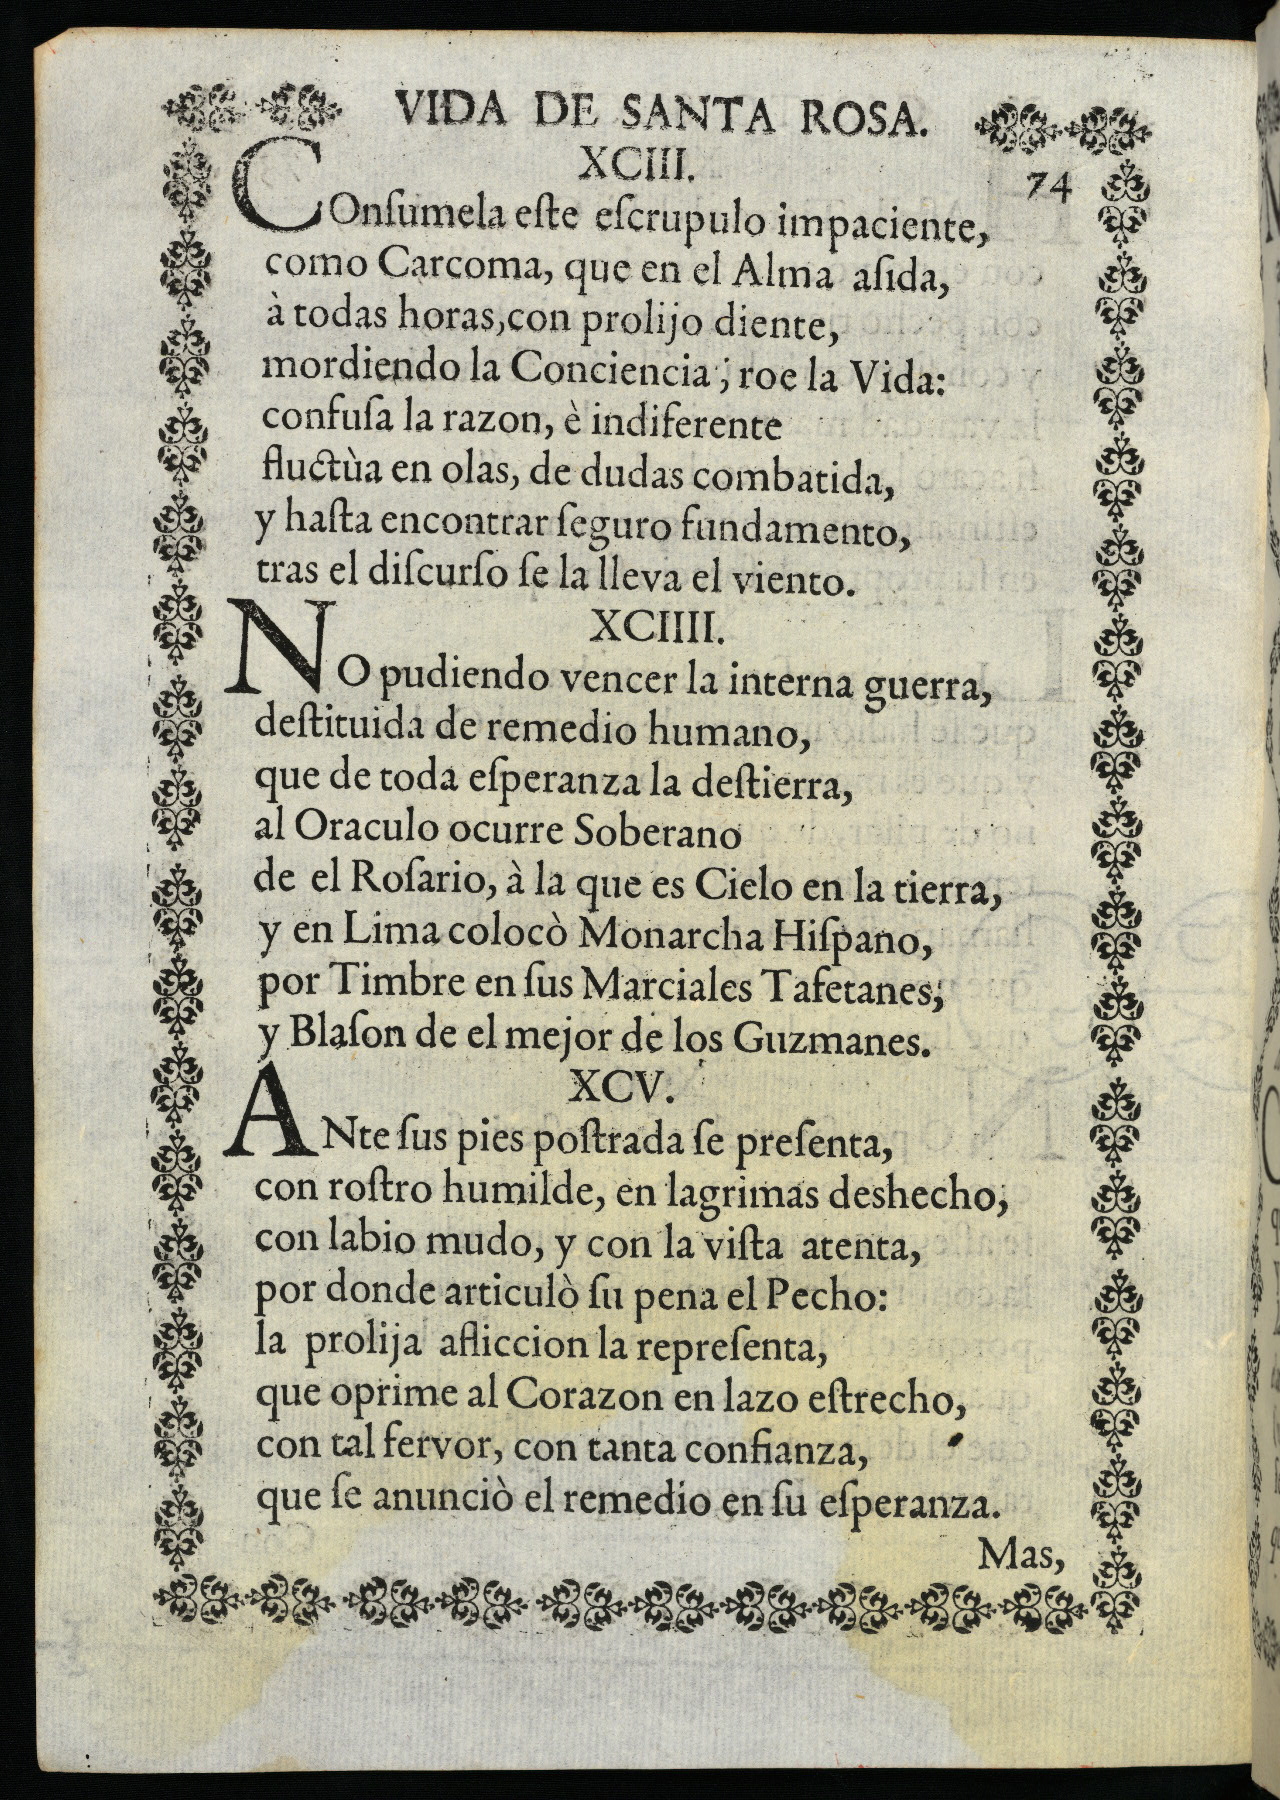 VIDA DE SANTA ROSA.
XCIII.
74
COnſumela eſte eſcrupulo impaciente,
como Carcoma, que en el Alma aſida,
à todas horas,con prolijo diente,
mordiendo la Conciencia; roe la Vida:
confuſa la razon, è indiferente
fluctùa en olas, de dudas combatida,
y haſta encontrar ſeguro fundamento,
tras el diſcurſo ſe la lleva el viento.
XCIIII.
NO pudiendo vencer la interna guerra,
deſtituida de remedio humano,
que de toda eſperanza la deſtierra,
al Oraculo ocurre Soberano
de el Roſario, à la que es Cielo en la tierra,
y en Lima colocò Monarcha Hiſpano,
por Timbre en ſus Marciales Tafetanes;
y Blaſon de el mejor de los Guzmanes.
XCV.
ANte ſus pies poſtrada ſe preſenta,
con roſtro humilde, en lagrimas deshecho,
con labio mudo, y con la viſta atenta,
por donde articulò ſu pena el Pecho:
la prolija afliccion la repreſenta,
que oprime al Corazon en lazo eſtrecho,
con tal fervor, con tanta confianza,
que ſe anunciò el remedio en ſu eſperanza.
Mas,